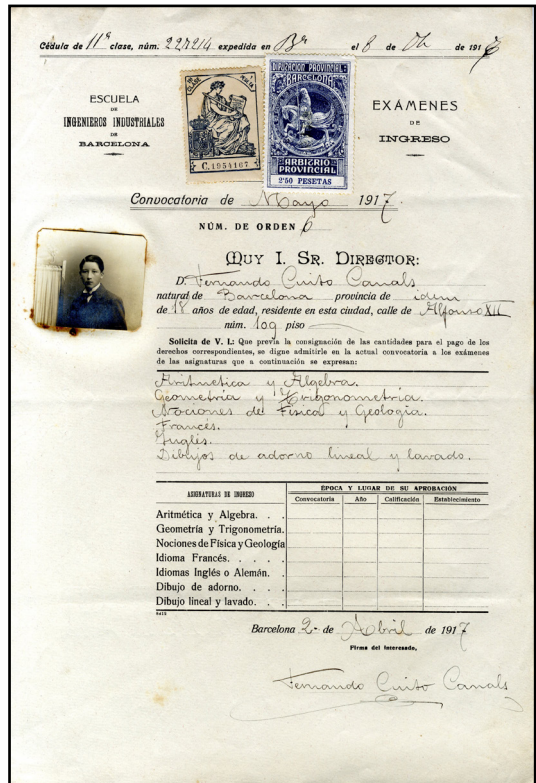 Cédula de 11ª clase, núm. 227214 expedida en Bª el 8 de de 1916
ESCUELA
DE
INGENIEROS INDUSTRIALES
DE
BARCELONA
CLASE
C.1954167
DIPUTACION PROVINCIAL
BARCELONA
ARBITRIO
PROVINCIAL
2'50 PESETAS
EXÁMENES
DE
INGRESO
Convocatoria de Mayo 1917
NÚM. DE ORDEN 6
MUY I. SR. DIRECTOR:
D. Fernando Cuito Canals
natural de Barcelona provincia de idem
de 18 años de edad, residente en esta ciudad, calle de Alfonso XII
núm. 109 piso —
Solicita de V. I.: Que previa la consignación de las cantidades para el pago de los
derechos correspondientes, se digne admitirle en la actual convocatoria a los exámenes
de las asignaturas que a continuación se expresan:
Aritmética y Algebra.
Geometría y Trigonometría.
Nociones de Física y Geología.
Francés.
Inglés.
Dibujos de adorno lineal y lavado.
ASIGNATURAS DE INGRESO
ÉPOCA Y LUGAR DE SU APROBACIÓN
Convocatoria Año Calificación Establecimiento
Aritmética y Algebra. . .
Geometría y Trigonometría.
Nociones de Física y Geología
Idioma Francés. . . . .
Idiomas Inglés o Alemán. .
Dibujo de adorno. . . .
Dibujo lineal y lavado. . .
Barcelona 2 de Abril de 1917
Firma del interesado,
Fernando Cuito Canals